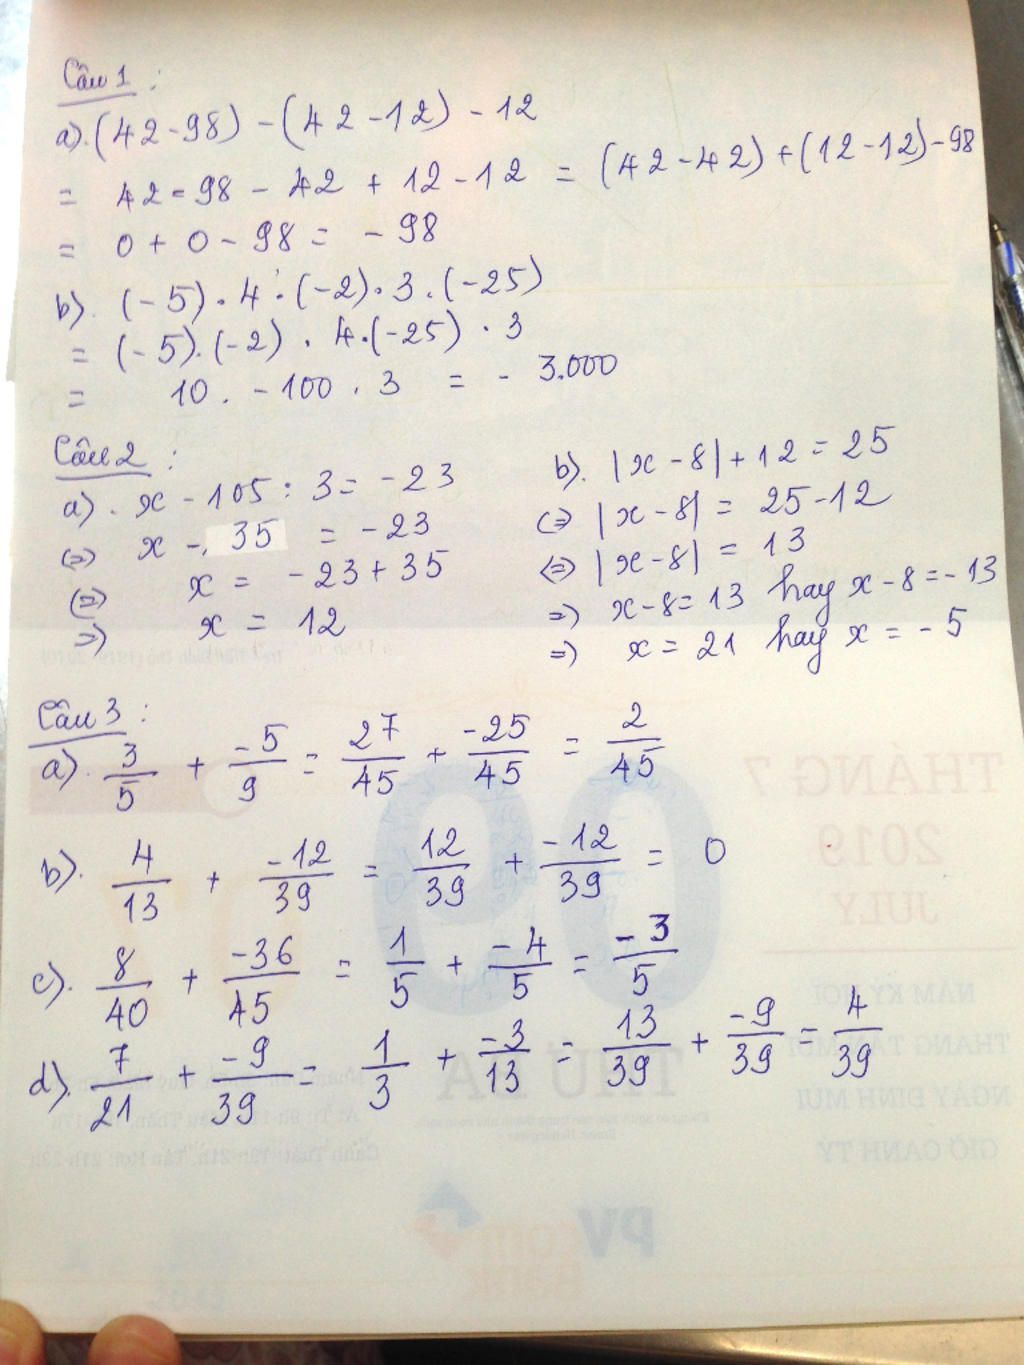 Câu 1 :
a). (42-98) - (42-12) - 12
= 42-98 - 42 + 12-12 = (42-42) + (12-12) - 98
= 0 + 0 - 98 = - 98
b). (-5) . 4 . (-2) . 3 . (-25)
= (-5) . (-2) . 4 . (-25) . 3
= 10 . -100 . 3 = - 3.000
Câu 2 :
a). x - 105 : 3 = -23
(=) x - 35 = -23
(=) x = -23 + 35
=) x = 12
b). |x - 8| + 12 = 25
(=) |x - 8| = 25-12
(=) |x - 8| = 13
=) x-8 = 13 hay x - 8 = -13
=) x = 21 hay x = - 5
Câu 3 :
a). 3/5 + -5/9 = 27/45 + -25/45 = 2/45
b). 4/13 + -12/39 = 12/39 + -12/39 = 0
c). 8/40 + -36/45 = 1/5 + -4/5 = -3/5
d). 7/21 + -9/39 = 1/3 + -3/13 = 13/39 + -9/39 = 4/39
THÁNG 7
2019
JULY
09
THỨ BA
NĂM KỶ HỢI
THÁNG TÂN MÙI
NGÀY ĐINH MÙI
GIỜ CANH TÝ
PVcom
Bank